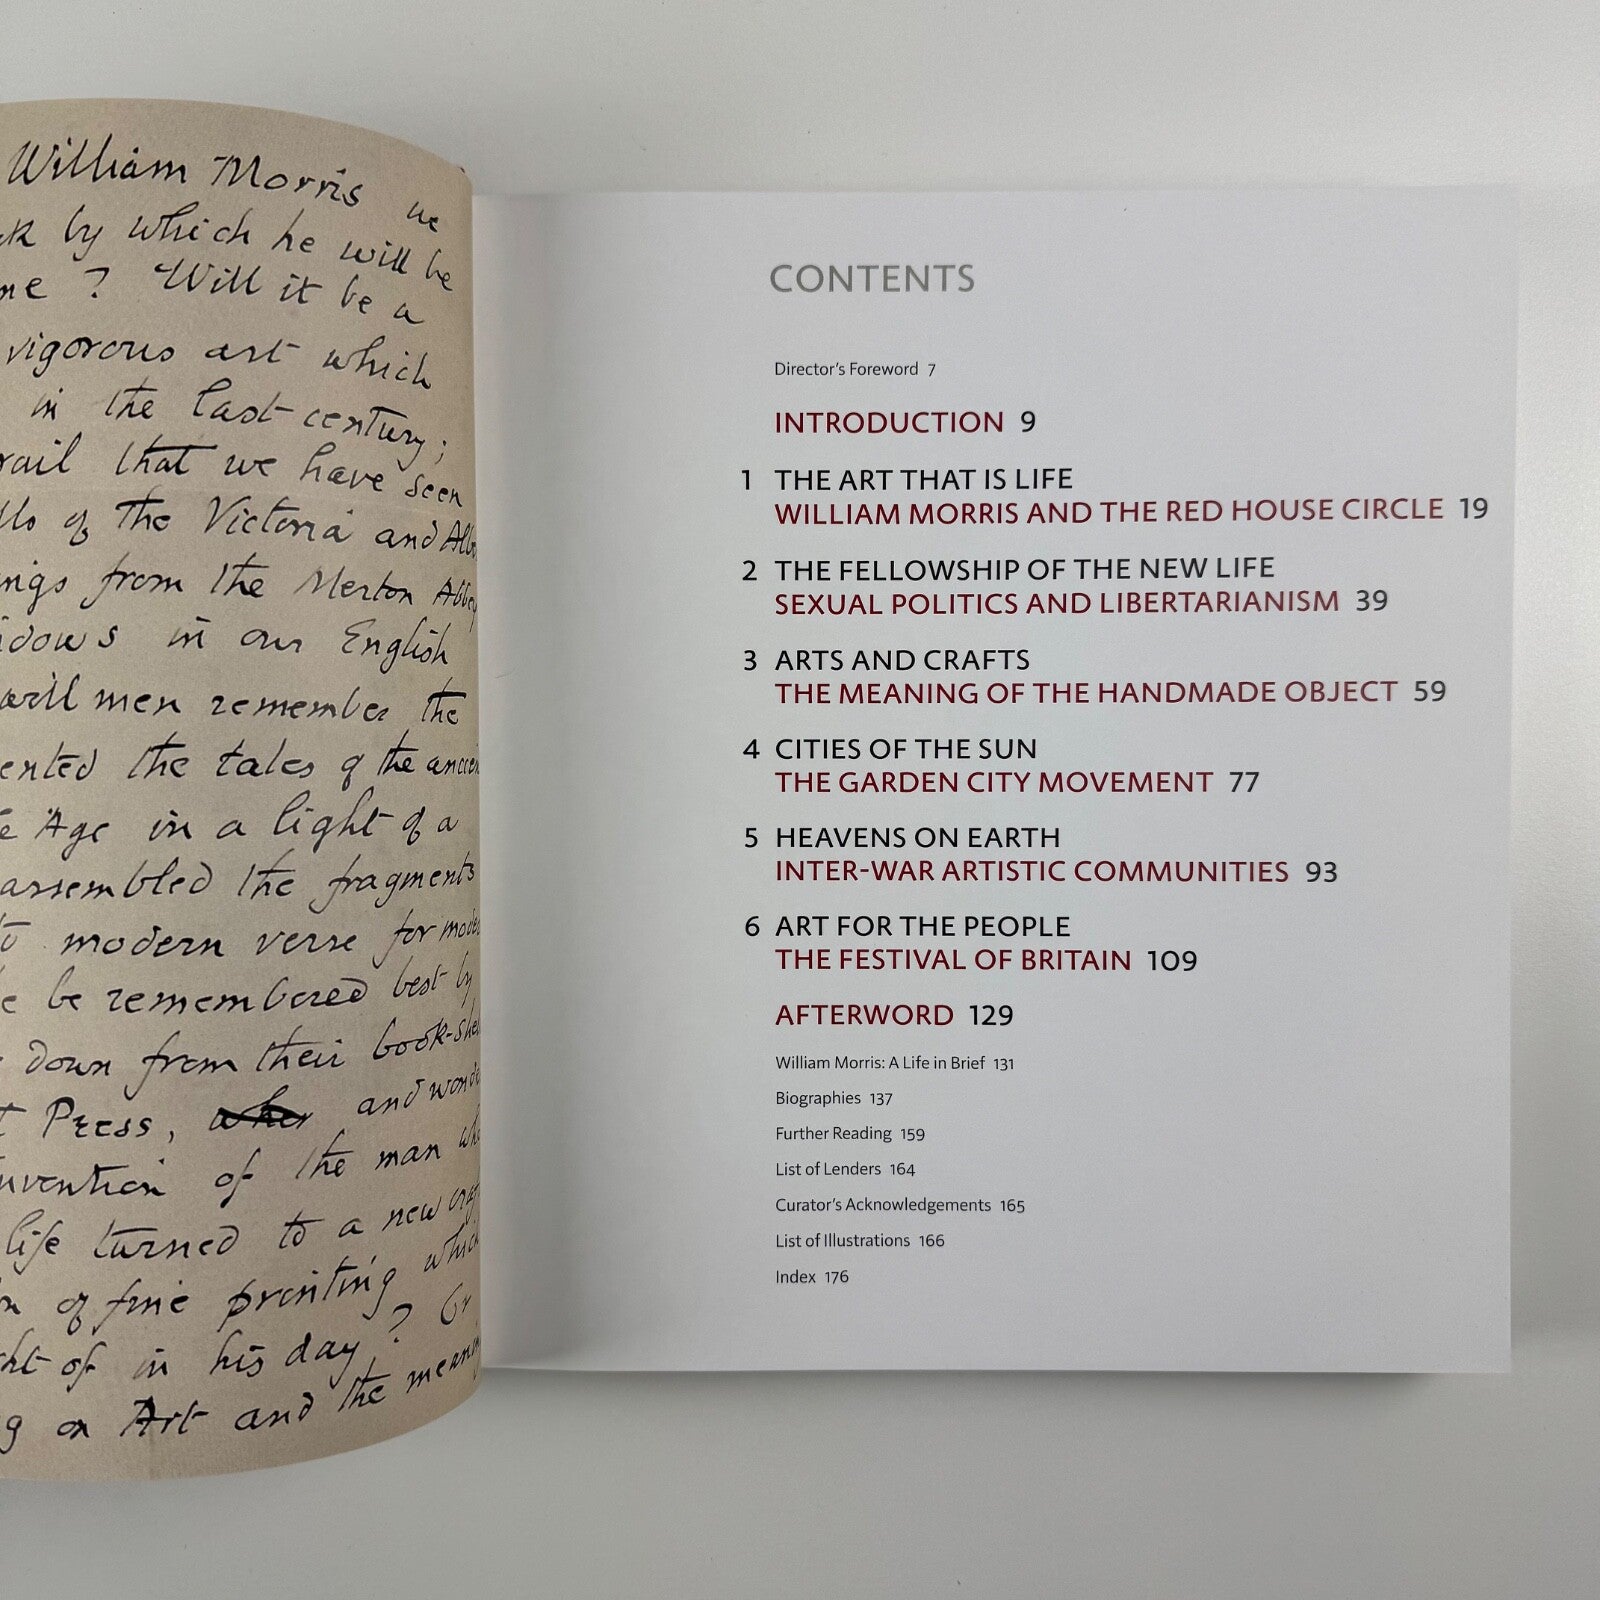 William Morris we
by which he will be
? Will it be a
vigorous art which
in the last century;
that we have seen
of the Victoria and
from the Merton
in our English
will men remember the
the tales of the
Age in a light of a
assembled the fragments
modern verse for
be remembered best by
down from their
Press, and
of the man
life turned to a new
of fine printing which
of in his day? Or
on Art and the
CONTENTS
Director's Foreword 7
INTRODUCTION 9
1 THE ART THAT IS LIFE
WILLIAM MORRIS AND THE RED HOUSE CIRCLE 19
2 THE FELLOWSHIP OF THE NEW LIFE
SEXUAL POLITICS AND LIBERTARIANISM 39
3 ARTS AND CRAFTS
THE MEANING OF THE HANDMADE OBJECT 59
4 CITIES OF THE SUN
THE GARDEN CITY MOVEMENT 77
5 HEAVENS ON EARTH
INTER-WAR ARTISTIC COMMUNITIES 93
6 ART FOR THE PEOPLE
THE FESTIVAL OF BRITAIN 109
AFTERWORD 129
William Morris: A Life in Brief 131
Biographies 137
Further Reading 159
List of Lenders 164
Curator's Acknowledgements 165
List of Illustrations 166
Index 176